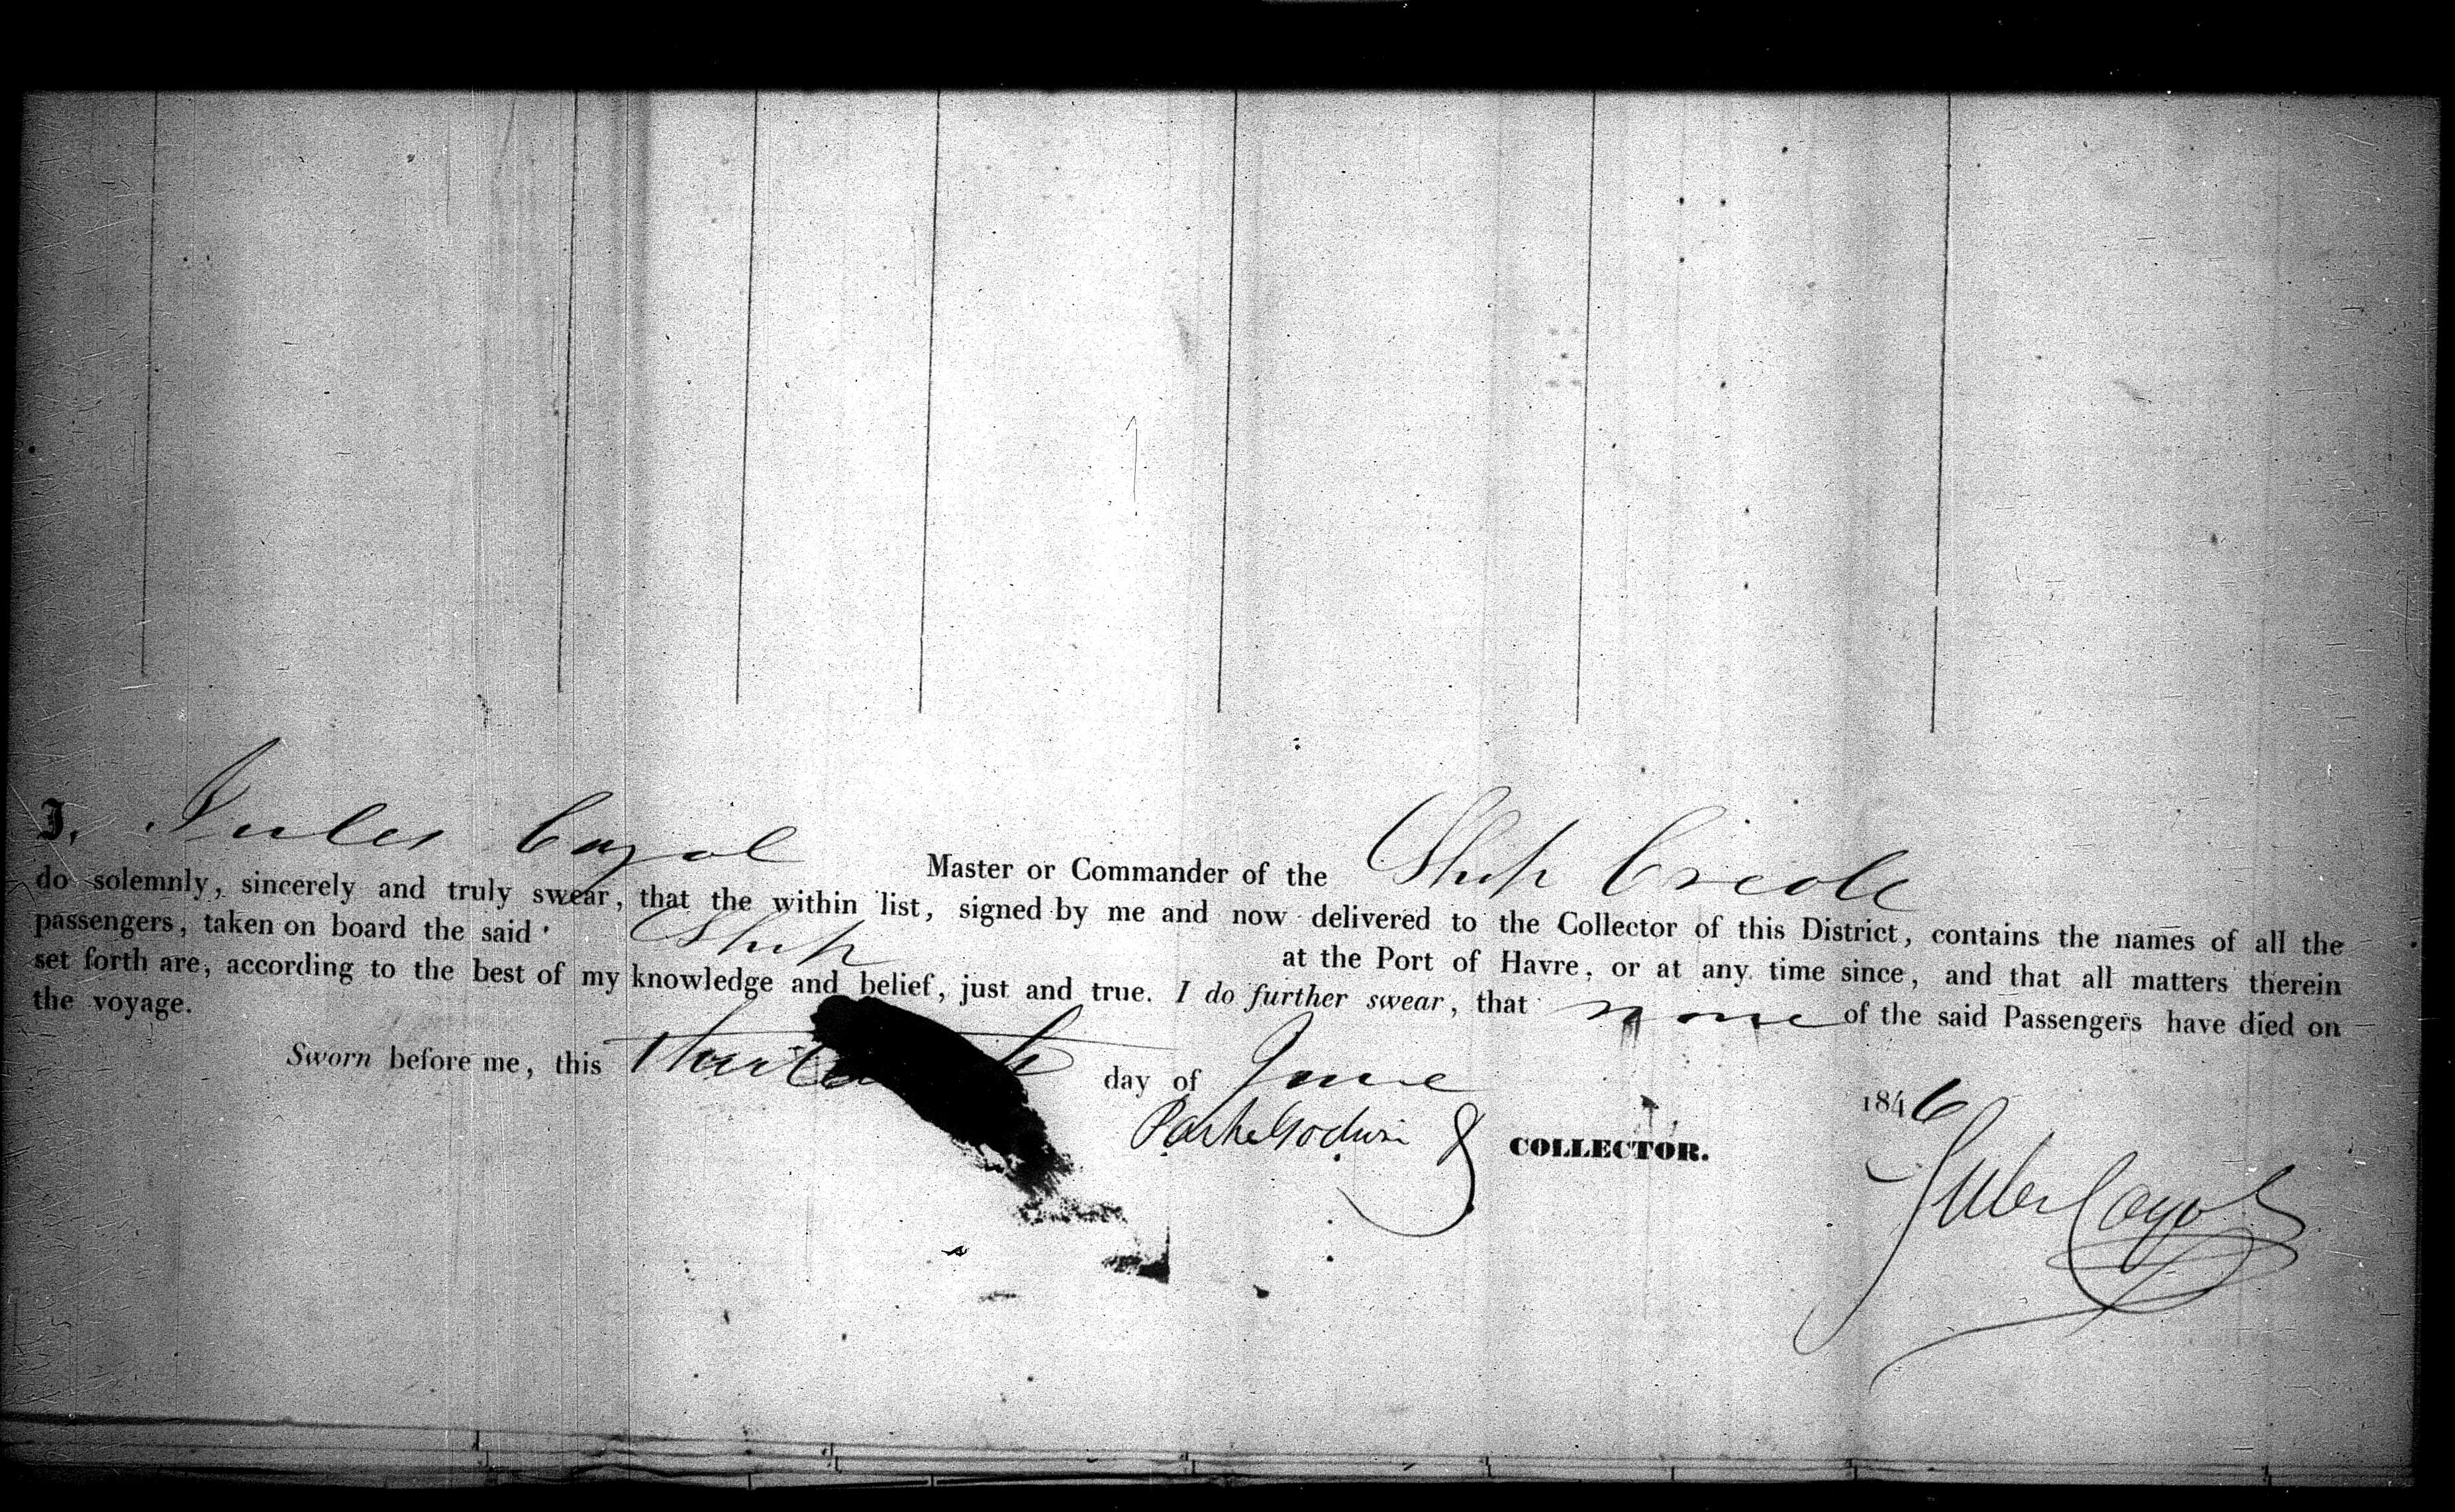 I, Jules Cazol Master or Commander of the Ship Creole
do solemnly, sincerely and truly swear, that the within list, signed by me and now delivered to the Collector of this District, contains the names of all the
passengers, taken on board the said Ship at the Port of Havre, or at any time since, and that all matters therein
set forth are, according to the best of my knowledge and belief, just and true. I do further swear, that none of the said Passengers have died on
the voyage.
Sworn before me, this day of June 1846
Parke Godwin COLLECTOR.
Jules Cayol